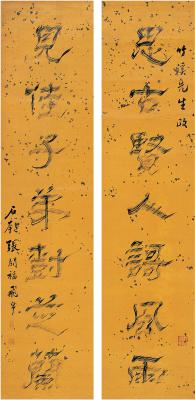 思古賢人語風雨
竹 先生政
見佳子弟對芝蘭
石匏張開福飛草